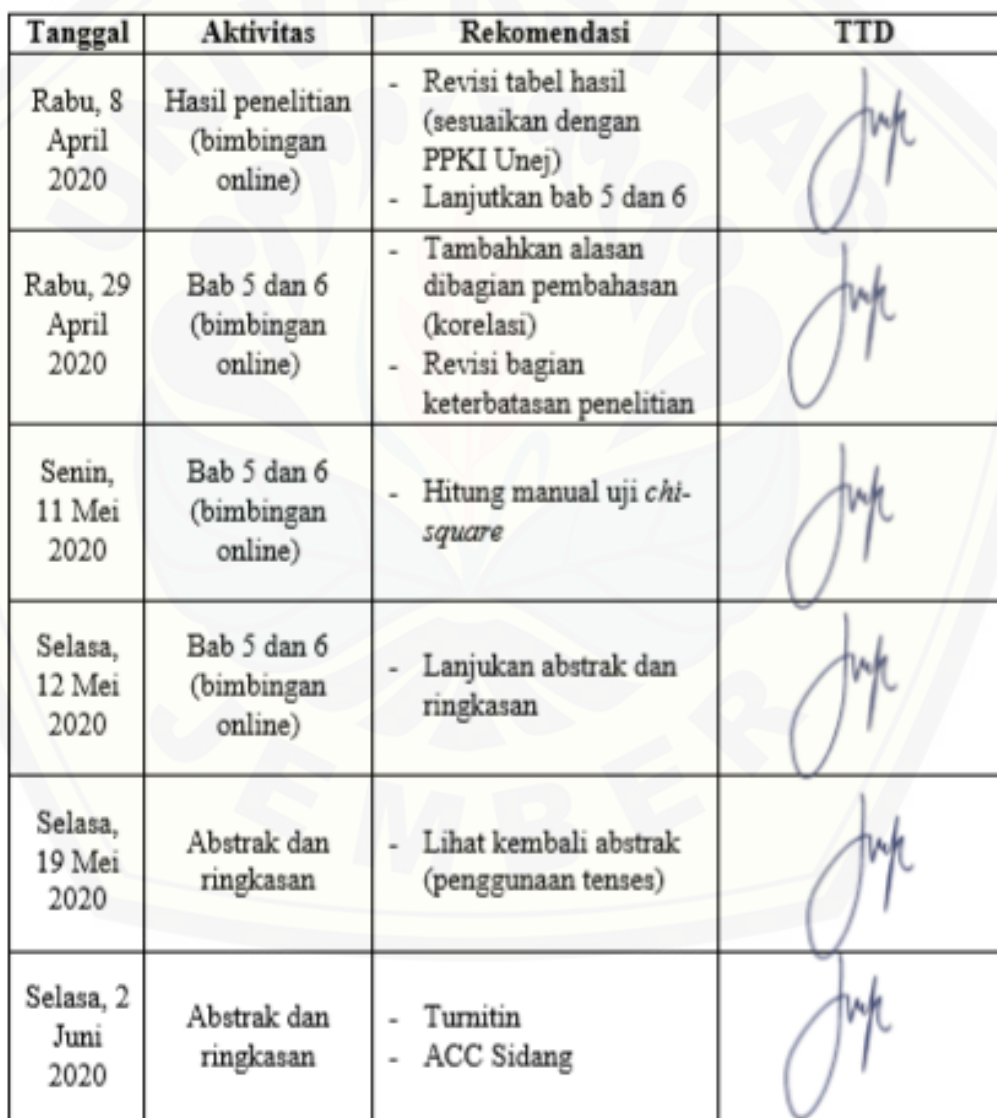 Tanggal Aktivitas Rekomendasi TTD
Rabu, 8
April
2020
Hasil penelitian
(bimbingan
online)
- Revisi tabel hasil
(sesuaikan dengan
PPKI Unej)
- Lanjutkan bab 5 dan 6
Rabu, 29
April
2020
Bab 5 dan 6
(bimbingan
online)
- Tambahkan alasan
dibagian pembahasan
(korelasi)
- Revisi bagian
keterbatasan penelitian
Senin,
11 Mei
2020
Bab 5 dan 6
(bimbingan
online)
- Hitung manual uji chi-
square
Selasa,
12 Mei
2020
Bab 5 dan 6
(bimbingan
online)
- Lanjukan abstrak dan
ringkasan
Selasa,
19 Mei
2020
Abstrak dan
ringkasan
- Lihat kembali abstrak
(penggunaan tenses)
Selasa, 2
Juni
2020
Abstrak dan
ringkasan
- Turnitin
- ACC Sidang
UNIVERSITAS
JEMBER